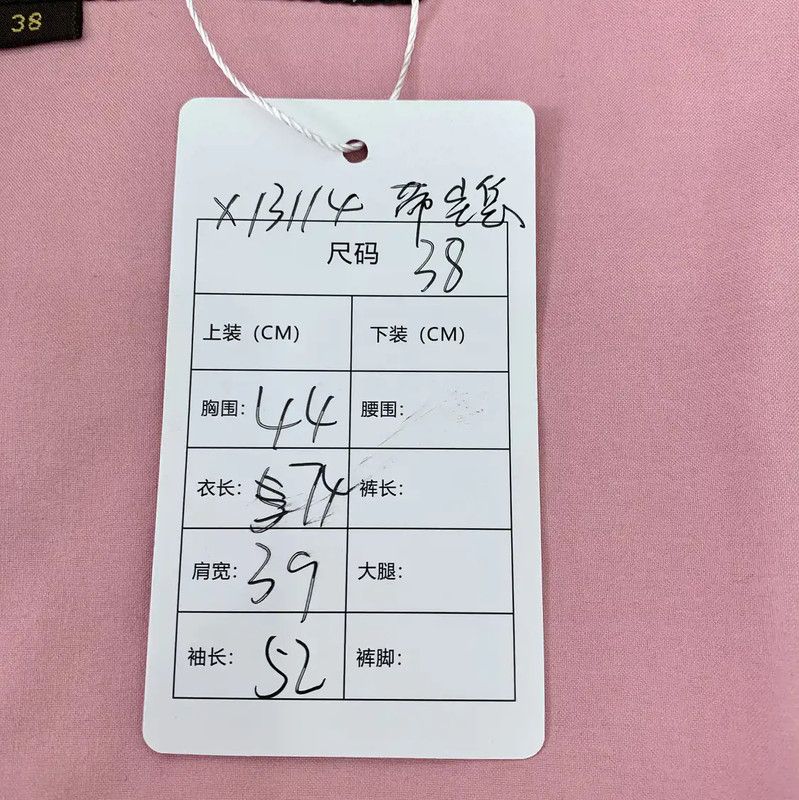 38
X13114 带
尺码 38
上装（CM） 下装（CM）
胸围: 44 腰围:
衣长: 74 裤长:
肩宽: 39 大腿:
袖长: 52 裤脚: